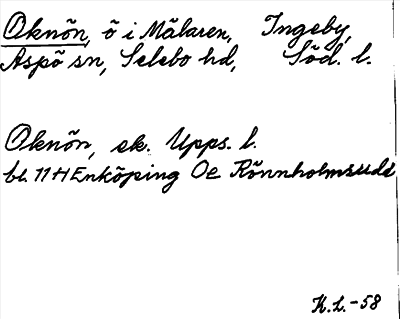 Oknön, ö i Mälaren, Ingeby,
Aspö sn, Selebo hd, Söd. l.
Oknön, ek. Upps. l.
bl. 11 H Enköping Oe Rönnholmsudd
K.L.-58